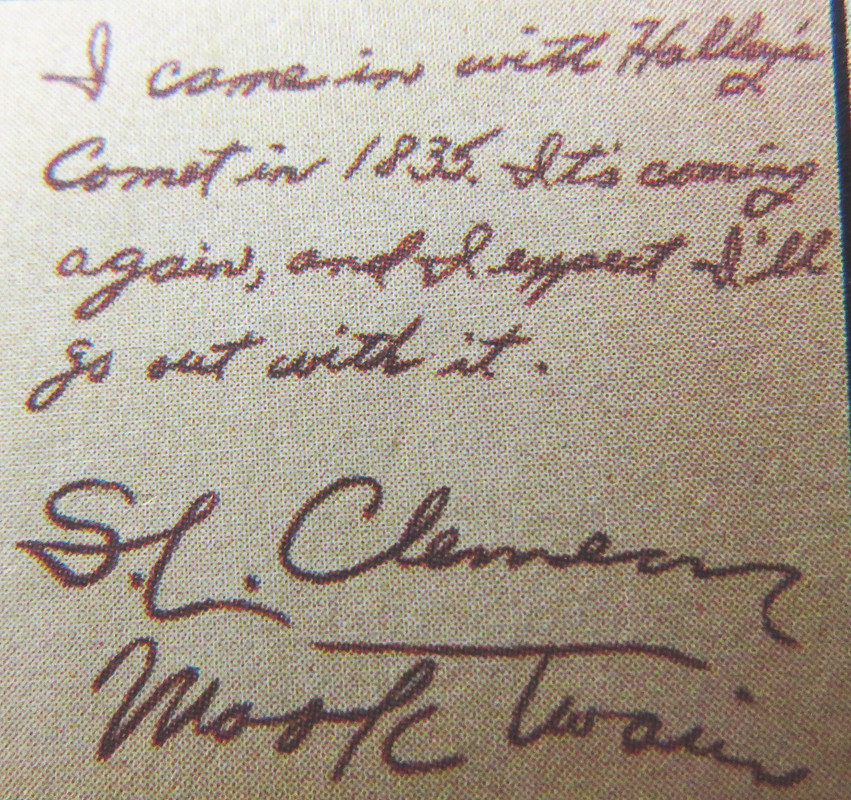 I came in with Halley's
Comet in 1835. It's coming
again, and I expect I'll
go out with it.
S. L. Clemens
Mark Twain